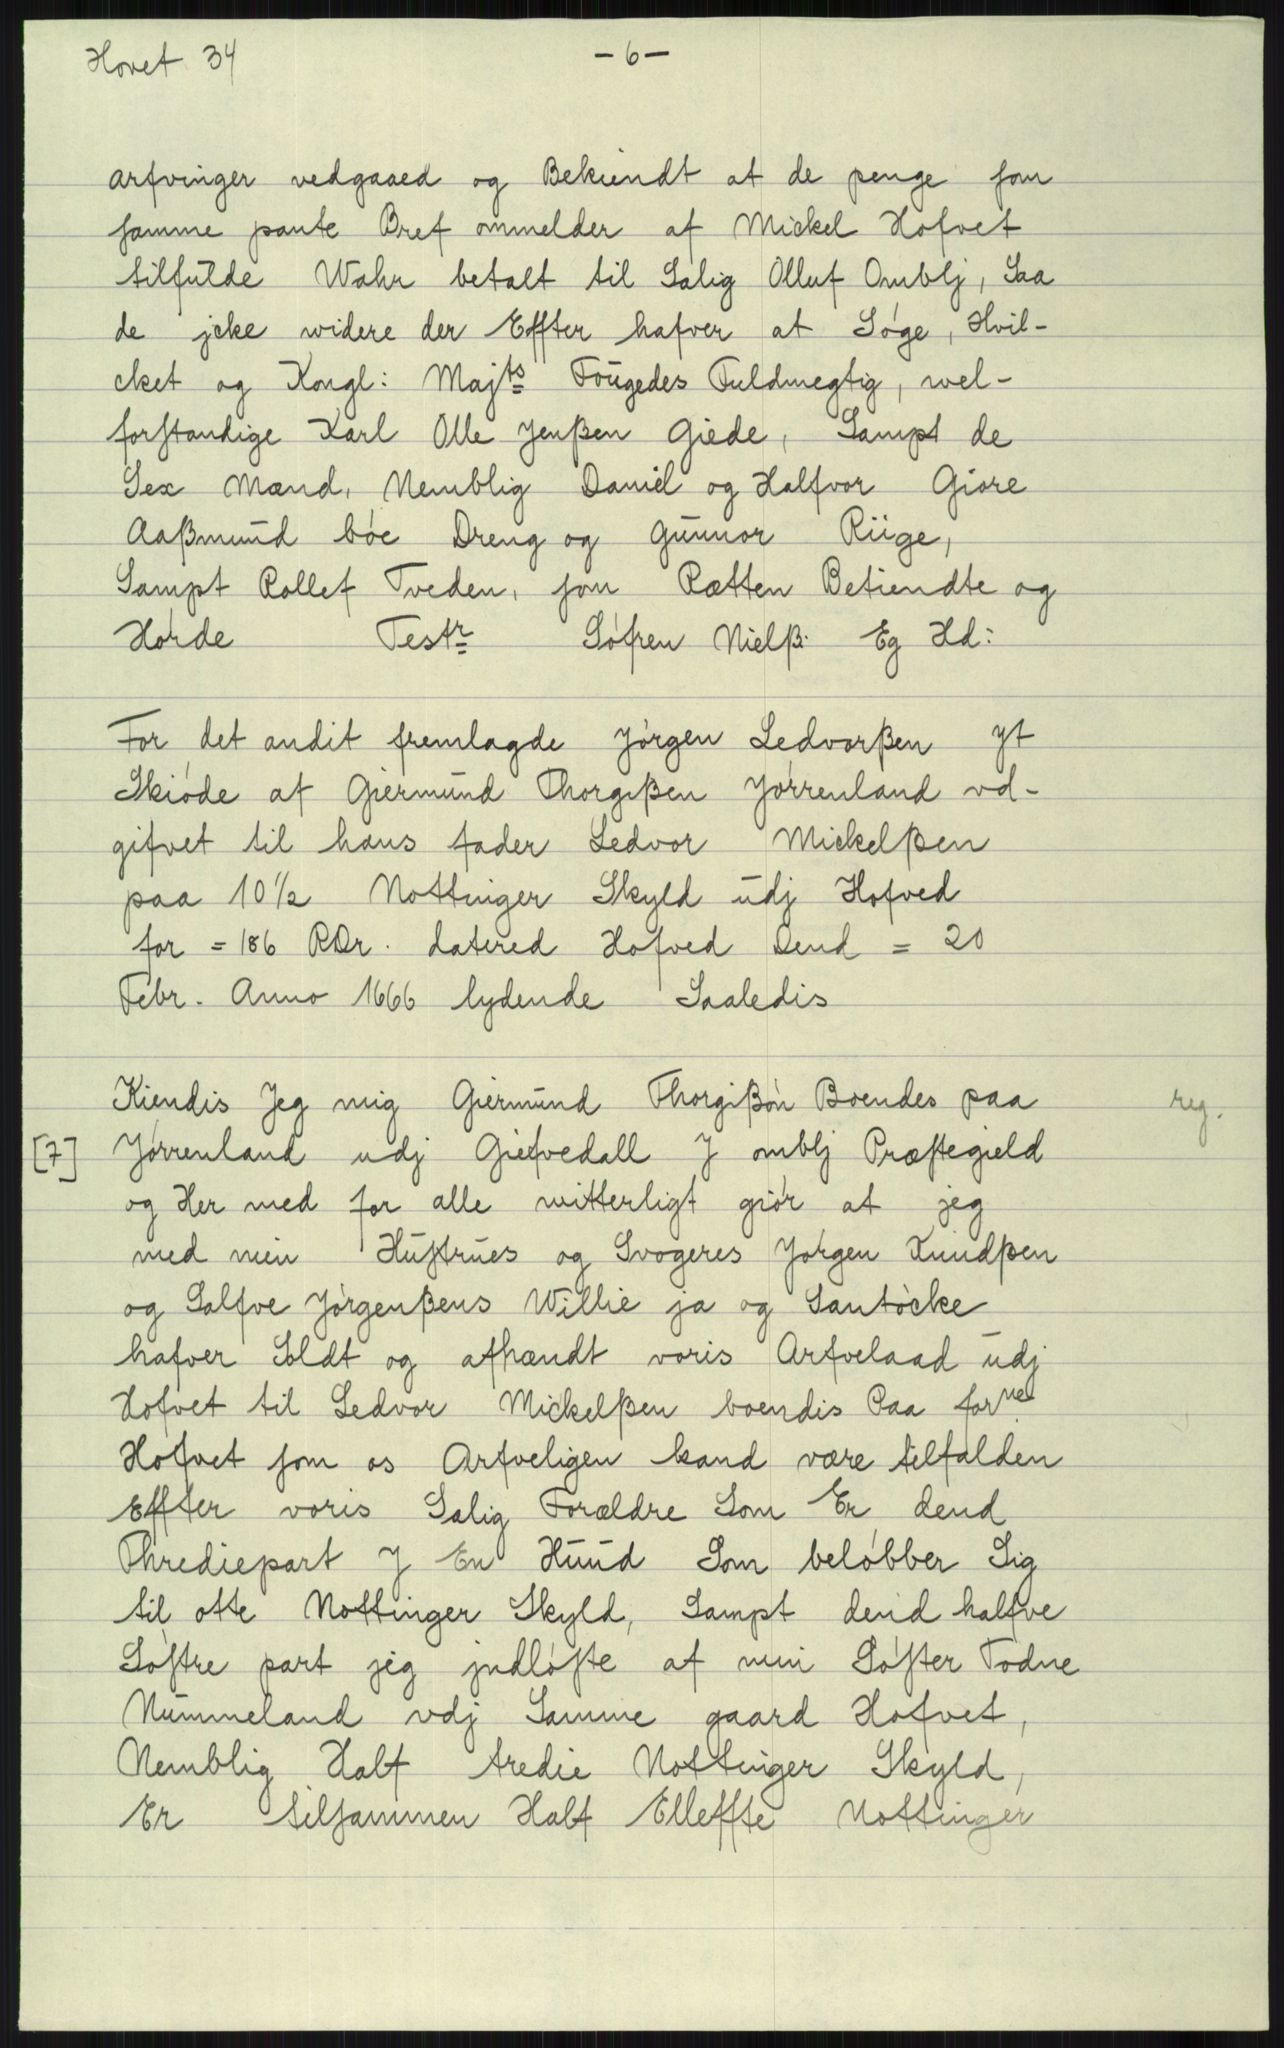 Hovet 34
- 6 -
arfvinger vedgaaed og Bekiendt at de penge som
samme pante Bref ommelder af Mickel Hofvet
tilfulde Wahr betalt til Salig Olluf Omblj, Saa
de jcke widere der Effter hafver at Søge, Hvil-
cket og Kongl: Majts Fougedes Fuldmegtig, wel-
forstandige Karl Olle Jenßen Giede, Sampt de
Sex Mænd, Nemblig Daniel og Halfvor Giore
Aaßmund bóe Dreng og Gunnor Riige,
Sampt Rollef Tveden, som Rætten Betiendte og
Hørde Testr Søfren Nielß. Eg Hd:
For det andit fremlagde Jørgen Ledvorßen yt
Skiøde af Giermund Thorgißen Jørrenland vd-
gifvet til hans fader Ledvor Mickelßen
paa 10 1/2 Nottinger Skyld udj Hofved
for = 186 RDr. datered Hofved Dend = 20
Febr. Anno 1666 lydende Saaledis
Kiendis Jeg mig Giermund Thorgißøn Boendes paa reg.
[7] Jørrenland udj Giefvedall J omblj Præstegield
og Her med for alle witterligt giør at jeg
med min Hustrues og Svogeres Jørgen Knudßen
og Salfve Jørgenßens Willie ja og Samtøcke
hafver Soldt og afhændt voris Arfvelaad udj
Hofvet til Ledvor Mickelßen boendis Paa forne
Hofvet som os Arfveligen kand være tilfalden
Effter voris Salig Forældre Som Er dend
Thrediepart J En Huud Som beløbber Sig
til otte Nottinger Skyld, Sampt dend halfve
Søstre part jeg jndløste af min Søster Todne
Nummeland vdj Samme gaard Hofvet,
Nemblig Half tredie Nottinger Skyld,
Er tilsammen Half Elleffte Nottinger